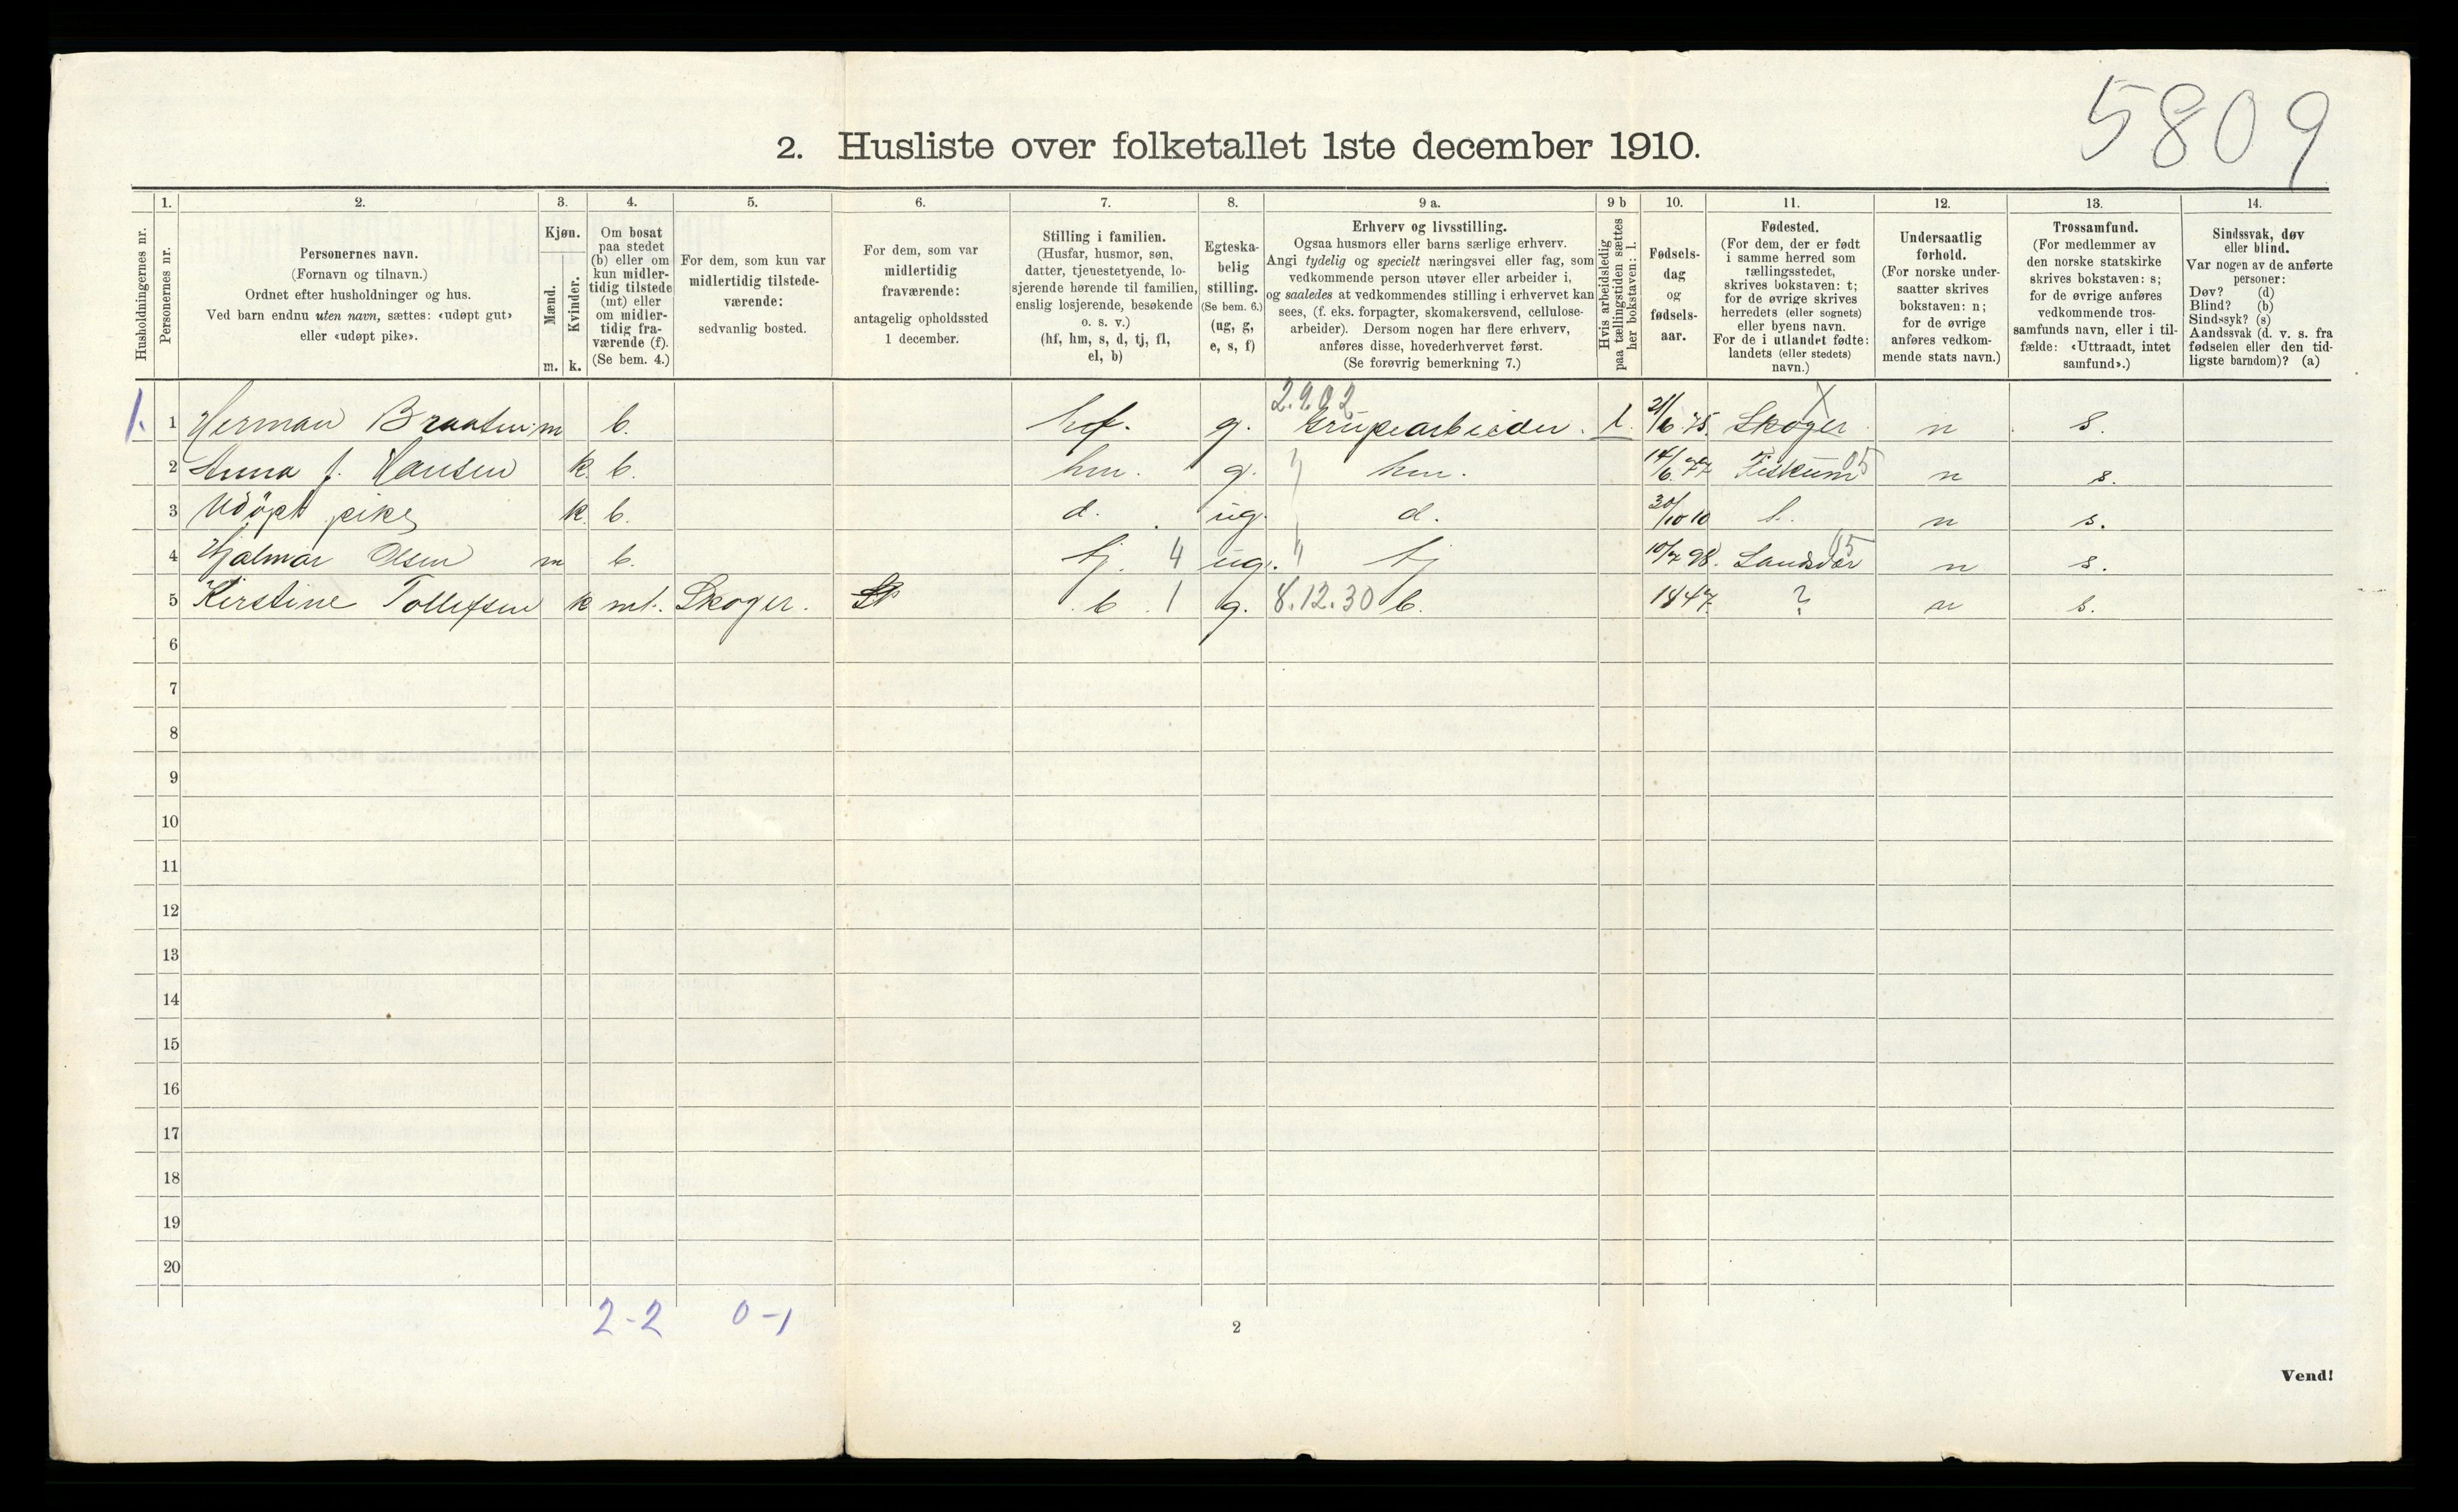 5809
2. Husliste over folketallet 1ste december 1910.
Husholdningernes nr.
1.
Personernes nr.
2.
Personernes navn.
(Fornavn og tilnavn.)
Ordnet efter husholdninger og hus.
Ved barn endnu uten navn, sættes: «udøpt gut»
eller «udøpt pike».
3.
Kjøn.
Mænd.
Kvinder.
m. k.
4.
Om bosat
paa stedet
(b) eller om
kun midler-
tidig tilstede
(mt) eller
om midler-
tidig fra-
værende (f).
(Se bem. 4.)
5.
For dem, som kun var
midlertidig tilstede-
værende:
sedvanlig bosted.
6.
For dem, som var
midlertidig
fraværende:
antagelig opholdssted
1 december.
7.
Stilling i familien.
(Husfar, husmor, søn,
datter, tjenestetyende, lo-
sjerende hørende til familien,
enslig losjerende, besøkende
o. s. v.)
(hf, hm, s, d, tj, fl,
el, b)
8.
Egteska-
belig
stilling.
(Se bem. 6.)
(ug, g,
e, s, f)
9 a.
Erhverv og livsstilling.
Ogsaa husmors eller barns særlige erhverv.
Angi tydelig og specielt næringsvei eller fag, som
vedkommende person utøver eller arbeider i,
og saaledes at vedkommendes stilling i erhvervet kan
sees, (f. eks. forpagter, skomakersvend, cellulose-
arbeider). Dersom nogen har flere erhverv,
anføres disse, hovederhvervet først.
(Se forøvrig bemerkning 7.)
9 b
Hvis arbeidsledig
paa tællingstiden sættes
her bokstaven: l.
10.
Fødsels-
dag
og
fødsels-
aar.
11.
Fødested.
(For dem, der er født
i samme herred som
tællingsstedet,
skrives bokstaven: t;
for de øvrige skrives
herredets (eller sognets)
eller byens navn.
For de i utlandet fødte:
landets (eller stedets)
navn.)
12.
Undersaatlig
forhold.
(For norske under-
saatter skrives
bokstaven: n;
for de øvrige
anføres vedkom-
mende stats navn.)
13.
Trossamfund.
(For medlemmer av
den norske statskirke
skrives bokstaven: s;
for de øvrige anføres
vedkommende tros-
samfunds navn, eller i til-
fælde: «Uttraadt, intet
samfund».)
14.
Sindssvak, døv
eller blind.
Var nogen av de anførte
personer:
Døv? (d)
Blind? (b)
Sindssyk? (s)
Aandssvak (d. v. s. fra
fødselen eller den tid-
ligste barndom)? (a)
2.9.02 X
1. 1 Herman Braaten m b. hf. g. Grupearbeider. l. 21/6 75. Skoger n s.
2 Anna J. Hansen k b. hm. g. " hm. 14/6 77 Fiskum 05 n s.
3 Udöpt pike k b. d. ug. d. 30/10 10 n s.
4 Hjalmar Olsen m b. tj. 4 ug. " tj 10/7 98. Sandsvær 05 n s.
5 Kirstine Tollefsen k mt. Skoger. b 1 g. 8.12.30 b. 1847. ? n s.
6
7
8
9
10
11
12
13
14
15
16
17
18
19
20
2-2 0-1
2
Vend!